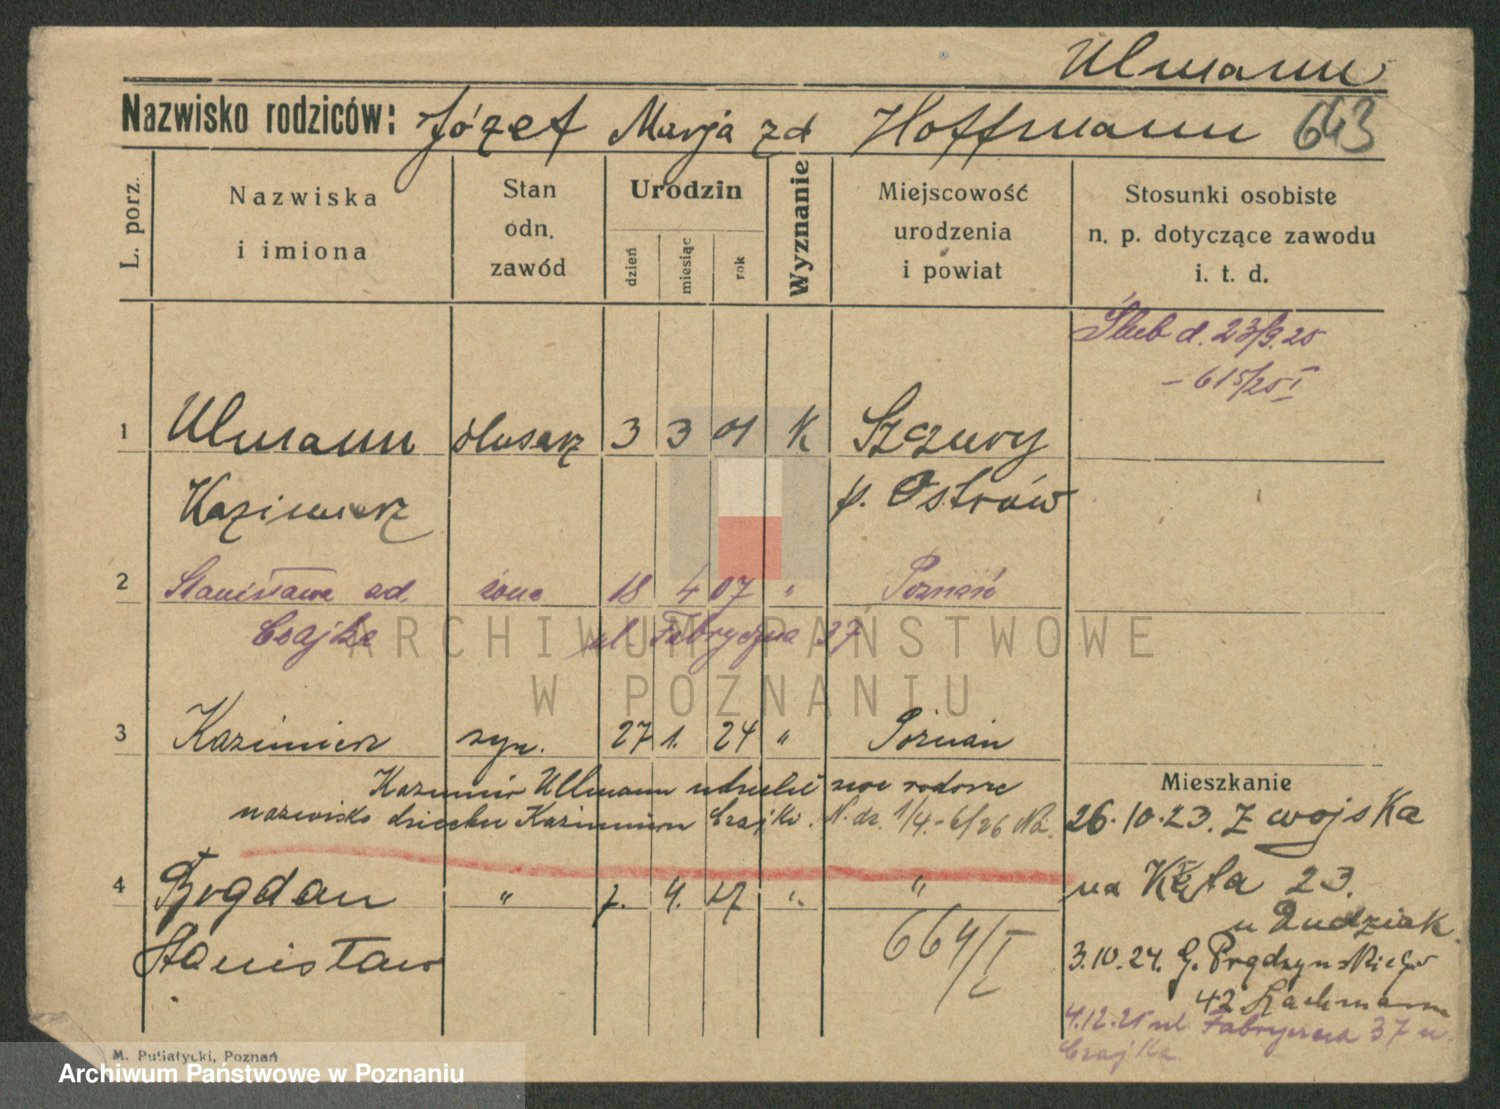 Ulmann
Nazwisko rodziców: Józef Marja zd Hoffmann 643
L. porz.
Nazwiska
i imiona
Stan
odn.
zawód
Urodzin
dzień
miesiąc
rok
Wyznanie
Miejscowość
urodzenia
i powiat
Stosunki osobiste
n. p. dotyczące zawodu
i. t. d.
Ślub d. 23/9. 25
- 615/25 I
1 Ulmann ślusarz 3 3 01 K Szczury
Kazimierz p. Ostrów
2 Stanisława zd. żona 18 4 07 " Poznań
Czajka ul. Fabryczna 37
3 Kazimierz syn. 27 1. 24 " Poznań
Kazimierz Ullmann udzielił swe rodowe
nazwisko dziecku Kazimierz Czajka. N. dz. 1/4.-6/26
Mieszkanie
26.10.23. z wojska
4 Bogdan " 7. 4. 27 " "
Stanisław
664/I
na Kęta 23.
u Dudziak.
3.10.24. G. Prądzyńskiego
42 Lachmann
4.12.25 ul Fabryczna 37 u.
Czajka
M. Putiatycki, Poznań
ARCHIWUM PAŃSTWOWE
W POZNANIU
Archiwum Państwowe w Poznaniu